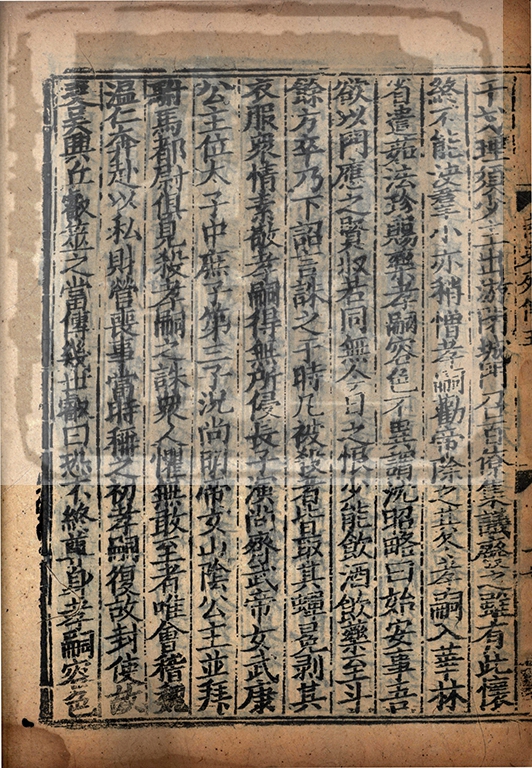 干戈理須少主出游閉城門召百僚集議廢之雖有此懷
終不能決羣小亦稍憎孝嗣勸帝除之其冬孝嗣入華林
省遣茹法珍賜藥孝嗣容色不異謂沈昭略曰始安事吾
欲以門應之賢叔若同無今日之恨少能飲酒飲藥至斗
餘方卒乃下詔言誅之于時凡被殺者皆取其蟬冕剥其
衣服衆情素敬孝嗣得無所侵長子演尚齊武帝女武康
公主位太子中庶子第三子況尚明帝女山陰公主並拜
駙馬都尉俱見殺孝嗣之誅衆人懼無敢至者唯會稽魏
温仁奔赴以私財營喪事當時稱之初孝嗣復故封使故
吏吳興丘叡筮之當傳幾世叡曰恐不終尊身孝嗣容色